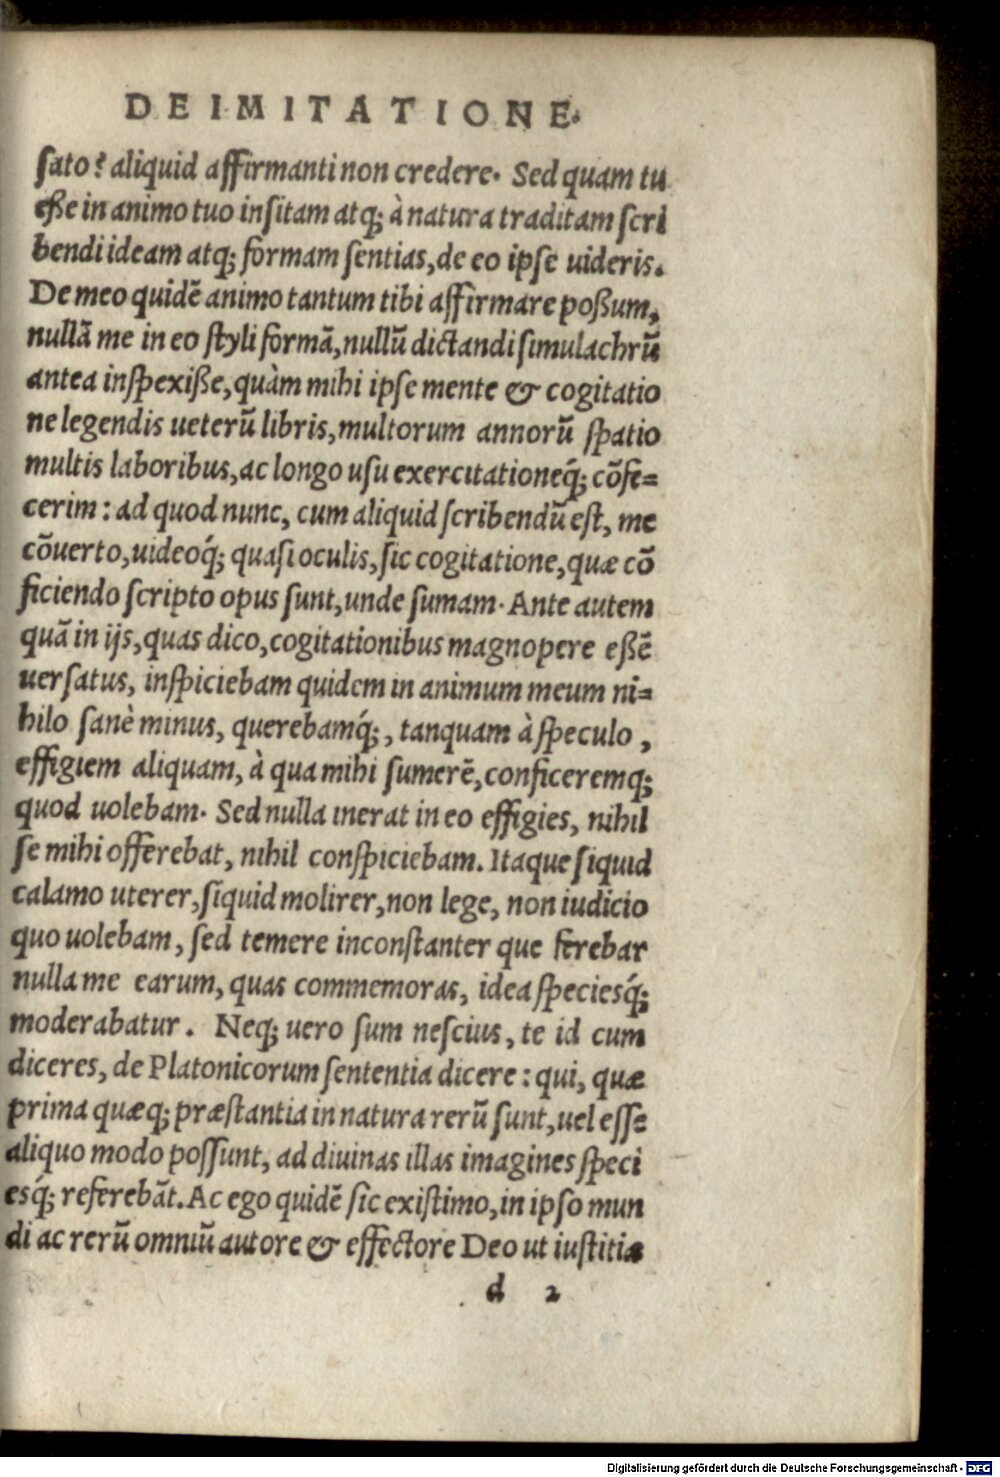 DE IMITATIONE.
ſato? aliquid affirmanti non credere. Sed quam tu
eße in animo tuo inſitam atq; à natura traditam ſcri
bendi ideam atq; formam ſentias, de eo ipſe uideris.
De meo quidẽ animo tantum tibi affirmare poßum,
nullã me in eo ſtyli formã, nullũ dictandi ſimulachrũ
antea inſpexiße, quàm mihi ipſe mente & cogitatio
ne legendis ueterũ libris, multorum annorũ ſpatio
multis laboribus, ac longo uſu exercitationeq́; cõfe=
cerim: ad quod nunc, cum aliquid ſcribendũ eſt, me
cõuerto, uideoq́; quaſi oculis, ſic cogitatione, quæ cõ
ficiendo ſcripto opus ſunt, unde ſumam. Ante autem
quã in ijs, quas dico, cogitationibus magnopere eßẽ
uerſatus, inſpiciebam quidem in animum meum ni=
hilo ſanè minus, querebamq́;, tanquam à ſpeculo,
effigiem aliquam, à qua mihi ſumerẽ, conficeremq;
quod uolebam. Sed nulla inerat in eo effigies, nihil
ſe mihi offerebat, nihil conſpiciebam. Itaque ſiquid
calamo uterer, ſiquid molirer, non lege, non iudicio
quo uolebam, ſed temere inconſtanter que ferebar
nulla me earum, quas commemoras, idea ſpeciesq́;
moderabatur. Neq; uero ſum neſcius, te id cum
diceres, de Platonicorum ſententia dicere: qui, quæ
prima quæq; præſtantia in natura rerũ ſunt, uel eſſe
aliquo modo poſſunt, ad diuinas illas imagines ſpeci
esq́; referebãt. Ac ego quidẽ ſic exiſtimo, in ipſo mun
di ac rerũ omniũ autore & effectore Deo ut iuſtitiæ
d 2
Digitalisierung gefördert durch die Deutsche Forschungsgemeinschaft - DFG